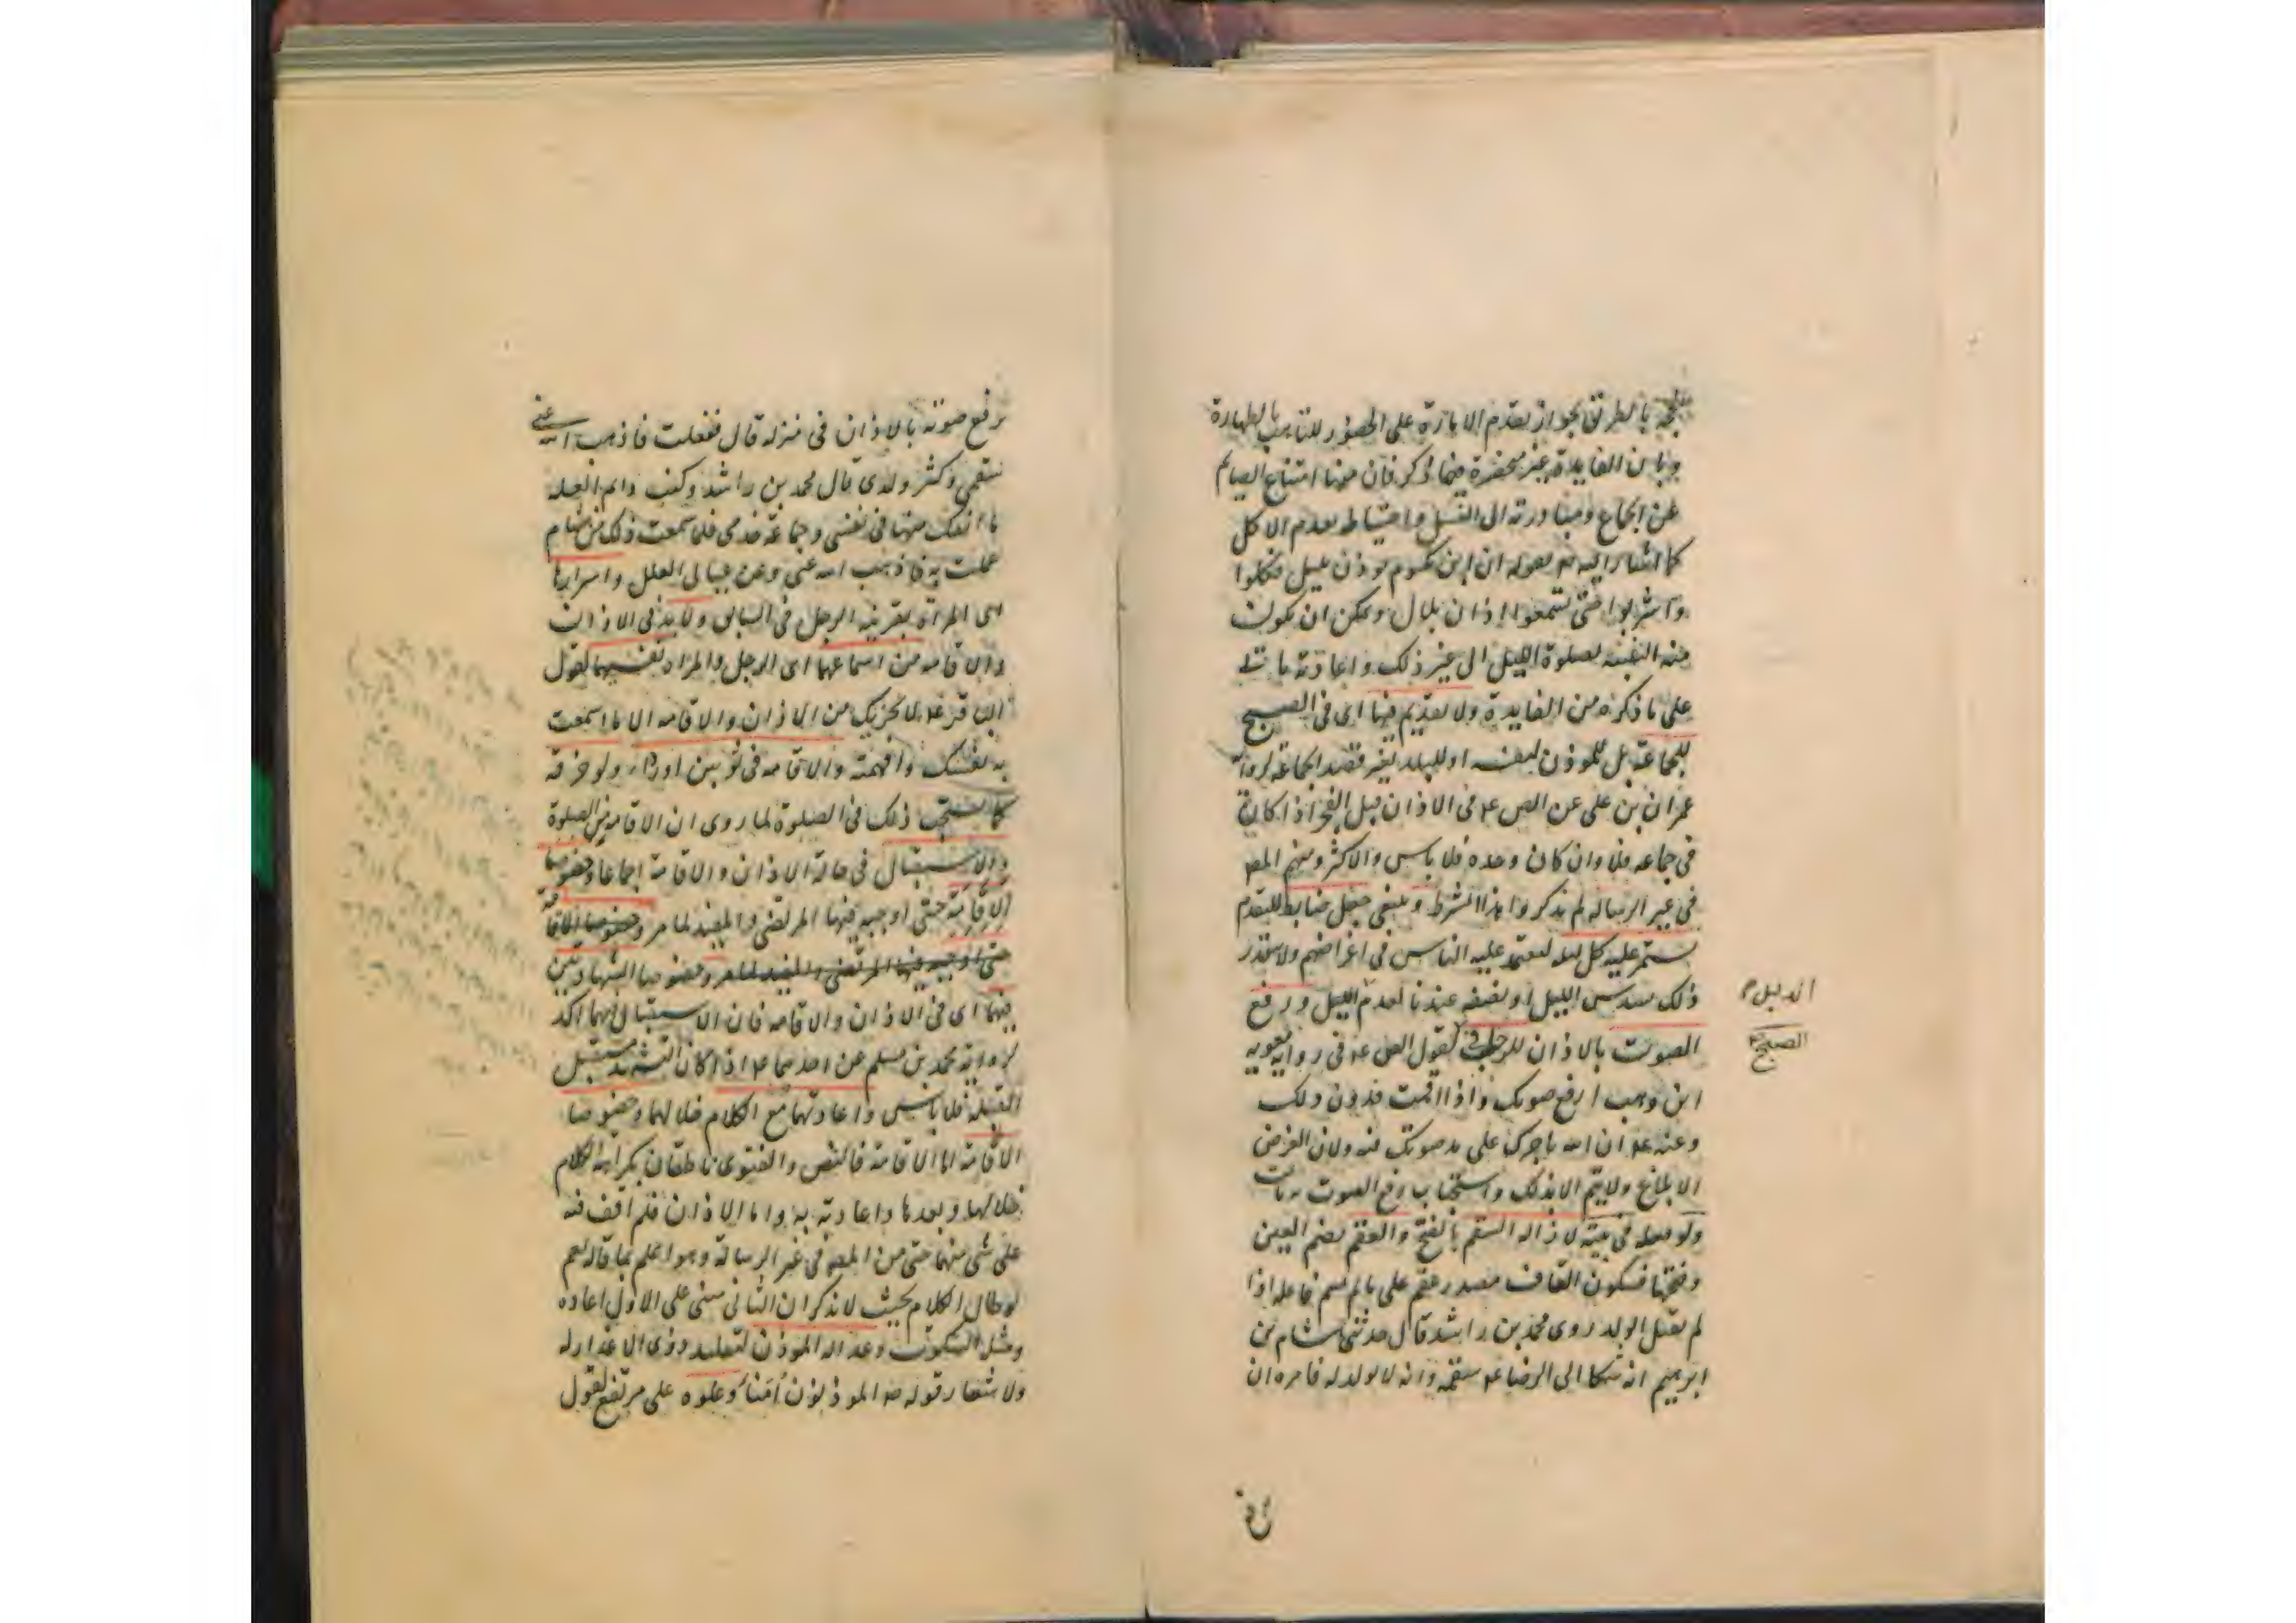 بالطريق بجواز تقدم الامارة على الحضور للتاهب بالطهارة
وبان الفايدة غير منحصرة فيما ذكر فان منها امتناع الصائم
عن الجماع ومبادرته الى الغسل واحتياطه بعدم الاكل
كما اشار اليه ص بقوله ان ابن مكتوم يوذن بليل فكلوا
واشربوا حتى تسمعوا اذان بلال ويمكن ان يكون
منه التنبيه لصلوة الليل الى غير ذلك واعادته
على ما ذكره من الفايدة ولا تقديم فيها اى فى الصبح
للجماعة بل للموذن لنفسه او للبلد بغير قصد الجماعة لرواية
عمران بن على عن الص ع فى الاذان قبل الفجر اذا كان
فى جماعة فلا وان كان وحده فلا باس والاكثر ومنهم المص
فى غير الرسالة لم يذكروا هذا الشرط وينبغى جعل ضابط للتقدم
يستمر عليه كل ليلة ليعتمد عليه الناس فى اغراضهم ولا يتقدر
ذلك بسدس الليل او نصفه عندنا لعدم الليل ورفع
الصوت بالاذان للرجل لقول الص ع فى رواية معوية
ابن وهب ارفع صوتك واذا اقمت فدون ذلك
وعنه ع ان الله ياجرك على مد صوتك فيه ولان الغرض
الابلاغ ولا يتم الا بذلك واستحباب رفع الصوت
ولو فعله فى بيته لازالة السقم بالفتح والعقم بضم العين
وفتحها فسكون القاف مصدر عقم على ما لم يسم فاعله اذا
لم يقبل الولد روى محمد بن راشد قال حدثنى هشام بن
ابرهيم انه شكا الى الرضا ع سقمه وانه لا يولد له فامره ان
الدليل
الصبح
يرفع صوته بالاذان فى منزله قال ففعلت فاذهب الله عنى
سقمى وكثر ولدى قال محمد بن راشد وكنت دايم العلة
ما انفك منها فى نفسى وجماعة خدمى فلما سمعت ذلك من هشام
عملت به فاذهب الله عنى وعن عيالى العلل واسرارها
اى المراة بقرينة الرجل فى السابق ولا بد فى الاذان
والاقامة من اسماعهما اى الرجل والمراة نفسيهما لقول
الباقر ع لا يجزيك من الاذان والاقامة الا ما اسمعت
به نفسك وافهمته والاقامة فى ثوبين او رداء ولو خرقة
كما يستحب ذلك فى الصلوة لما روى ان الاقامة من الصلوة
والاستقبال فى حالة الاذان والاقامة اجماعا وخصوصا
الاقامة حتى اوجبه فيها المرتضى والمفيد لما مر وخصوصا الاقامة
حتى اوجبه فيها المرتضى والمفيد لما مر وخصوصا الشهادتين
فيهما اى فى الاذان والاقامة فان الاستقبال فيهما اكد
لرواية محمد بن مسلم عن احدهما ع اذا كان التشهد مستقبل
القبلة فلا باس واعادتهما مع الكلام خلالهما وخصوصا
الاقامة اما الاقامة فالنص والفتوى ناطقان بكراهة الكلام
خلالها وبعدها واعادته به واما الاذان فلم اقف فيه
على شى منهما حتى من المص فى غير الرسالة وهو اعلم بما قاله نعم
لو طال الكلام بحيث لا يذكر ان الثانى مبنى على الاول اعاده
ومثل السكوت وعدالة الموذن لتقليد ذوى الاعذار له
ولاشعار قوله ص الموذنون امنا وعلوه على مرتفع لقول